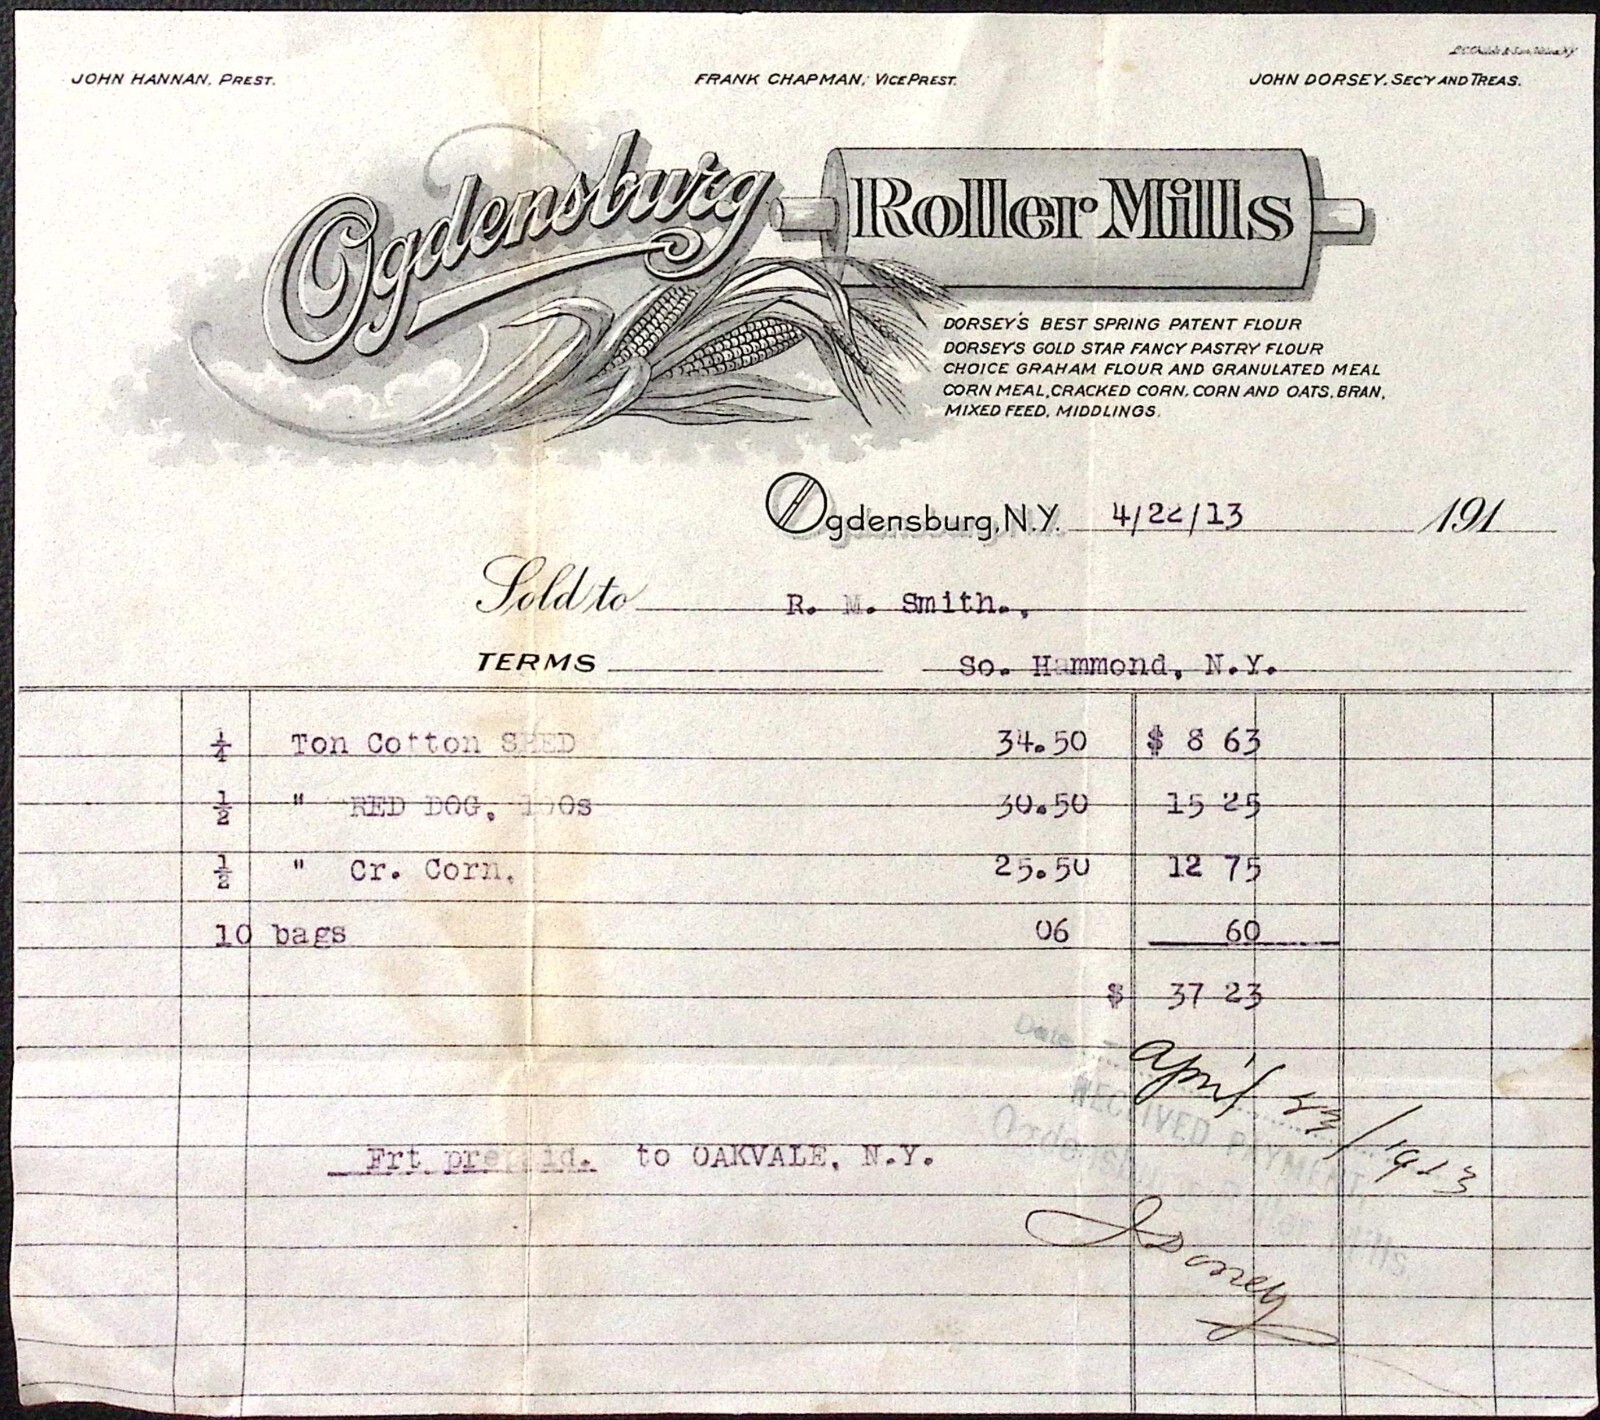 JOHN HANNAN, PREST. FRANK CHAPMAN, VICE PREST. JOHN DORSEY, SEC'Y AND TREAS.
Ogdensburg Roller Mills
DORSEY'S BEST SPRING PATENT FLOUR
DORSEY'S GOLD STAR FANCY PASTRY FLOUR
CHOICE GRAHAM FLOUR AND GRANULATED MEAL
CORN MEAL, CRACKED CORN, CORN AND OATS, BRAN,
MIXED FEED, MIDDLINGS.
Ogdensburg, N.Y. 4/22/13 191
Sold to R. M. Smith.,
TERMS So. Hammond, N.Y.
1/4 Ton Cotton SEED 34.50 $ 8 63
1/2 " RED DOG, 100s 30.50 15 25
1/2 " Cr. Corn. 25.50 12 75
10 bags 06 60
$ 37 23
Date
April 23/1913
RECEIVED PAYMENT
Frt prepaid. to OAKVALE, N.Y.
Ogdensburg Roller Mills
J Dorsey